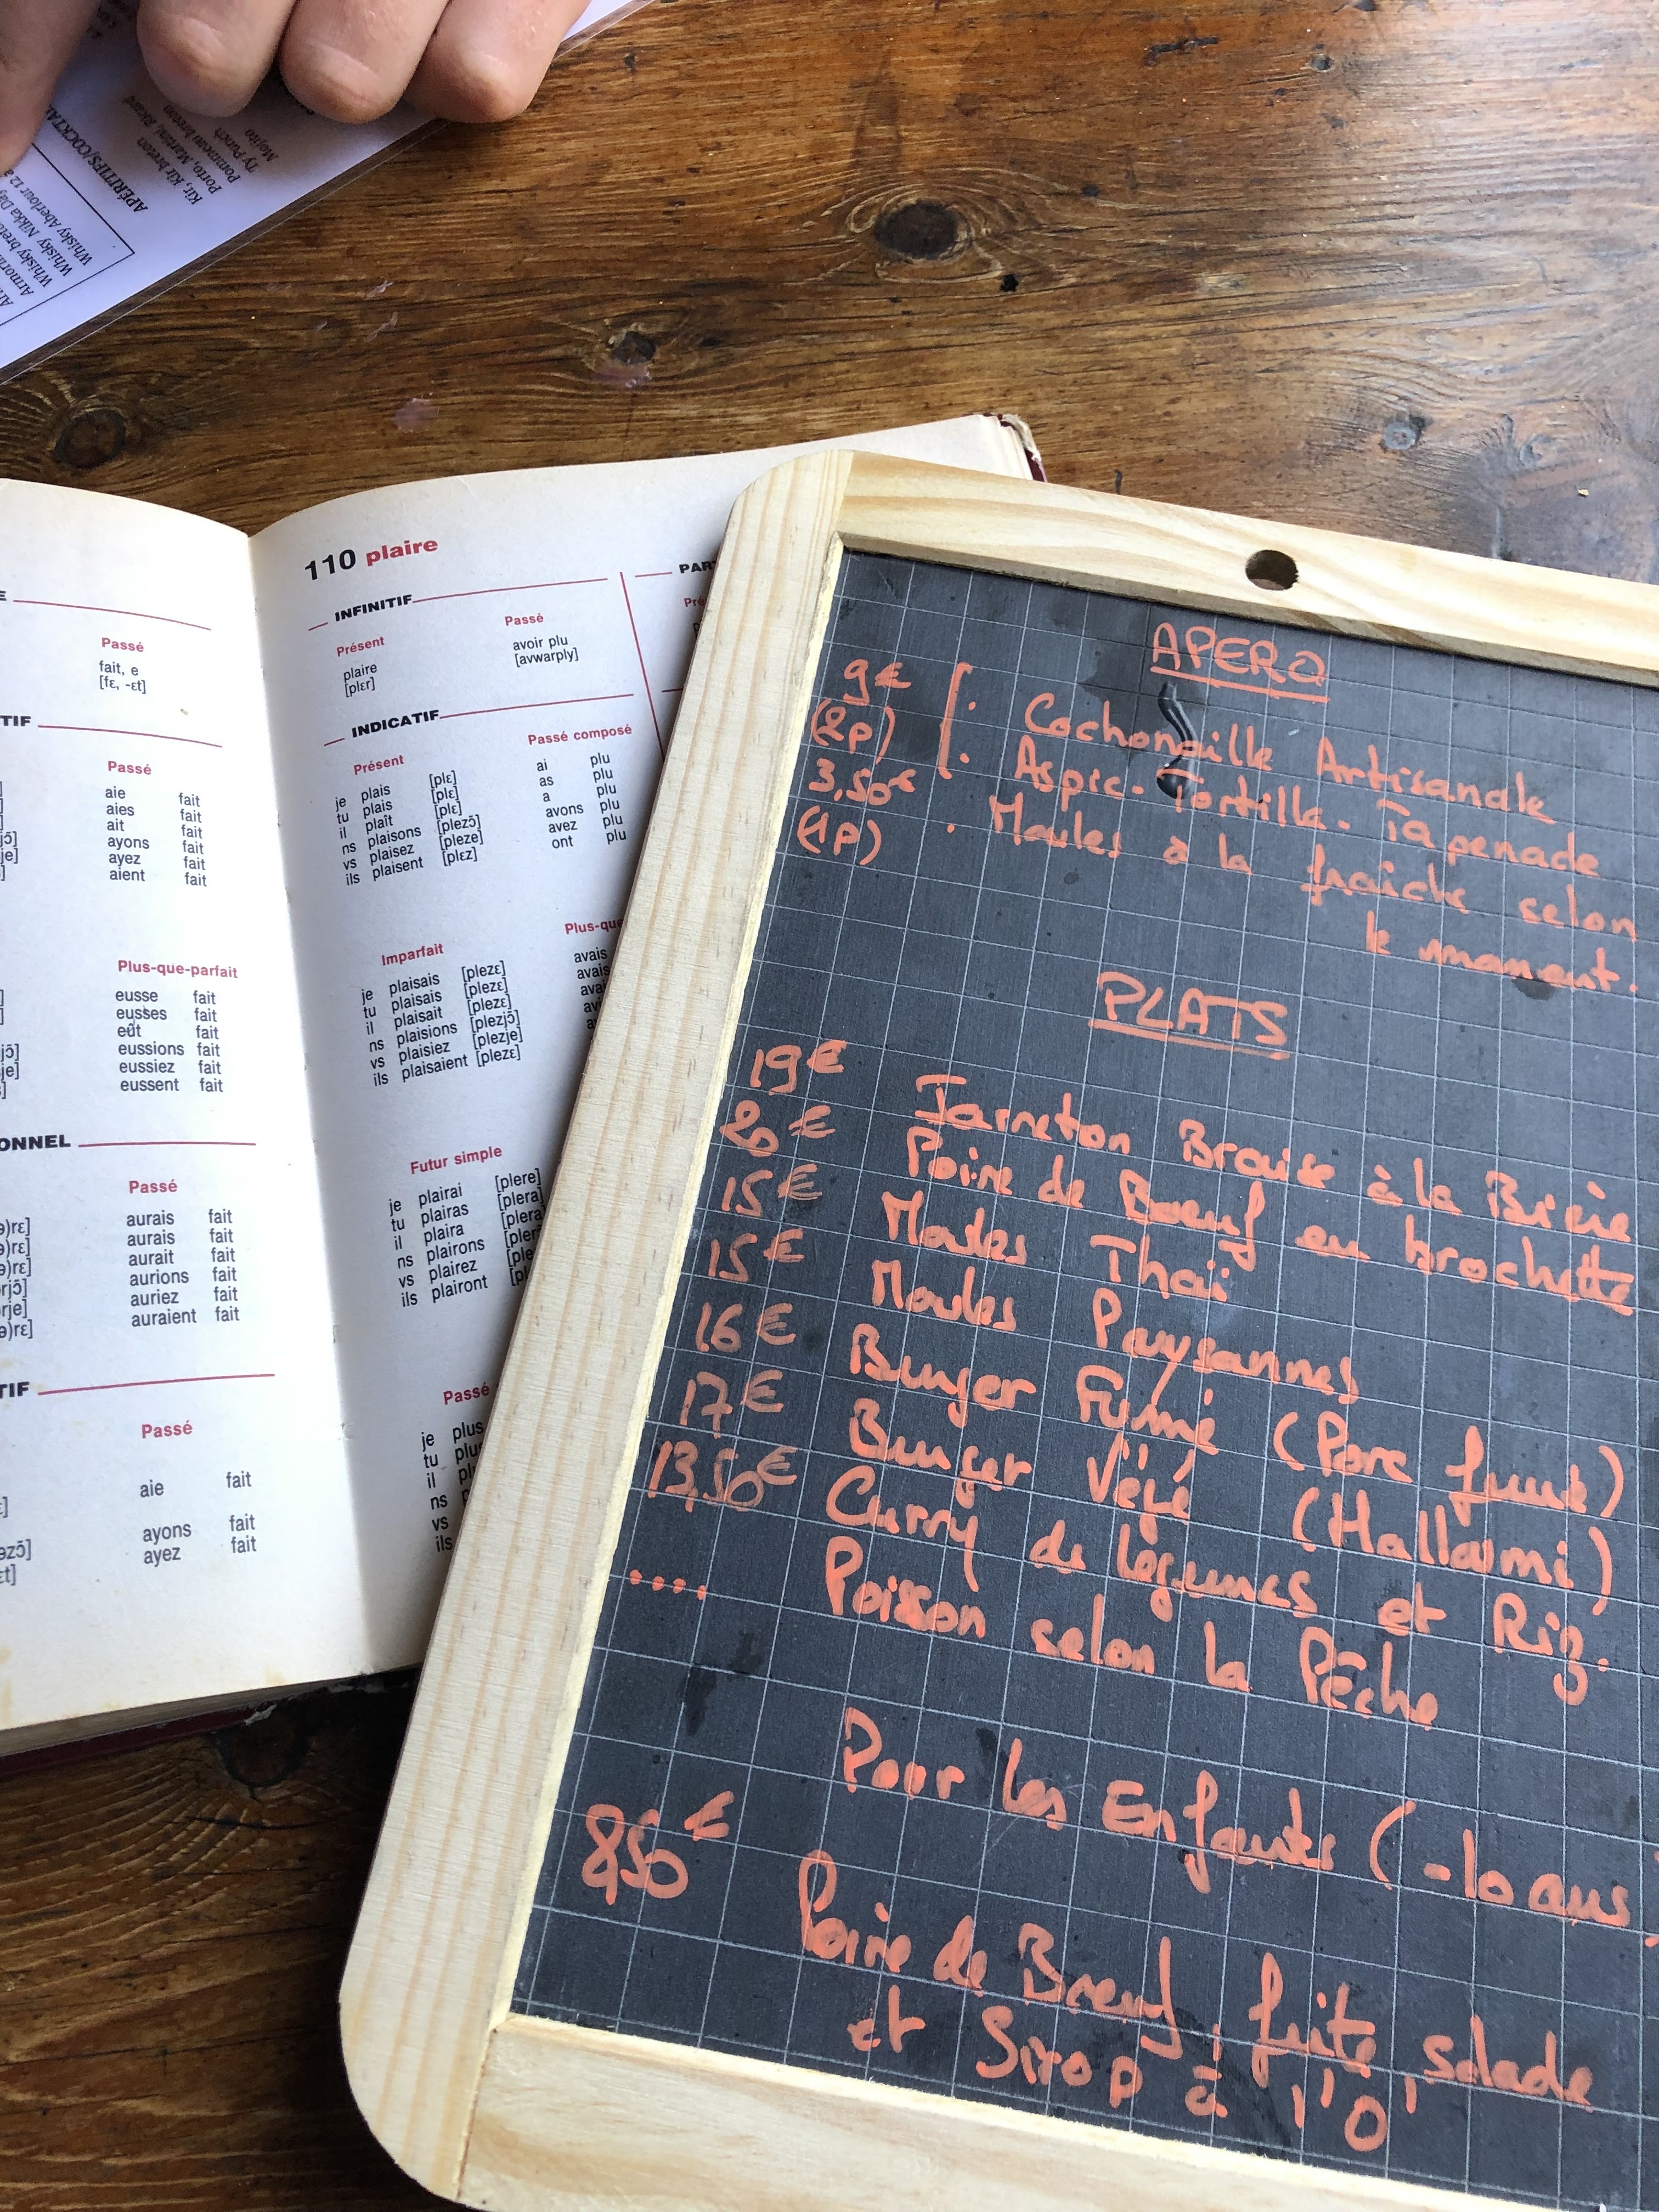 APÉRITIFS/COCKTA
Kir, Kir breton
Porto, Martini, Ricard
Pommeau breton
Ty Punch
Mojito
Whisky bret
Whisky Nikka Da
Whisky Aberlour 12 a
E
Passé
fait, e
[fɛ, -ɛt]
TIF
Passé
aie fait
aies fait
ait fait
ayons fait
ayez fait
aient fait
jɔ̃]
je]
Plus-que-parfait
eusse fait
eusses fait
eût fait
eussions fait
eussiez fait
eussent fait
jɔ̃]
je]
ONNEL
Passé
aurais fait
aurais fait
aurait fait
aurions fait
auriez fait
auraient fait
ə)rɛ]
ə)rɛ]
ə)rɛ]
rjɔ̃]
rje]
ə)rɛ]
TIF
Passé
aie fait
ayons fait
ayez fait
əzɔ̃]
110 plaire
INFINITIF
Présent
plaire
[plɛr]
Passé
avoir plu
[avwarply]
PAR
Pré
INDICATIF
Présent
je plais [plɛ]
tu plais [plɛ]
il plaît [plɛ]
ns plaisons [plezɔ̃]
vs plaisez [pleze]
ils plaisent [plɛz]
Passé composé
ai plu
as plu
a plu
avons plu
avez plu
ont plu
Imparfait
je plaisais [plezɛ]
tu plaisais [plezɛ]
il plaisait [plezɛ]
ns plaisions [plezjɔ̃]
vs plaisiez [plezje]
ils plaisaient [plezɛ]
Plus-que
avais
avais
avai
av
a
Futur simple
je plairai [plere]
tu plairas [plera]
il plaira [plera
ns plairons [pler
vs plairez [ple
ils plairont [pl
Passé
je plus
tu plu
il pl
ns p
vs
ils
APERO
9€ (2p) Cochonaille Artisanale
3,50€ Aspic - Tortilla - Tapenade
(1p) Moules à la fraîche selon
le moment.
PLATS
19€ Jarreton Braisé à la Bière
20€ Poire de Boeuf en brochette
15€ Moules Thaï
15€ Moules Paysannes
16€ Burger Fumé (Porc fumé)
17€ Burger Végé (Halloumi)
13,50€ Curry de légumes et Riz.
.... Poisson selon la Pêche
Pour les Enfants (-10 ans
8,50€ Poire de Boeuf, frite, salade
et Sirop à l'O'